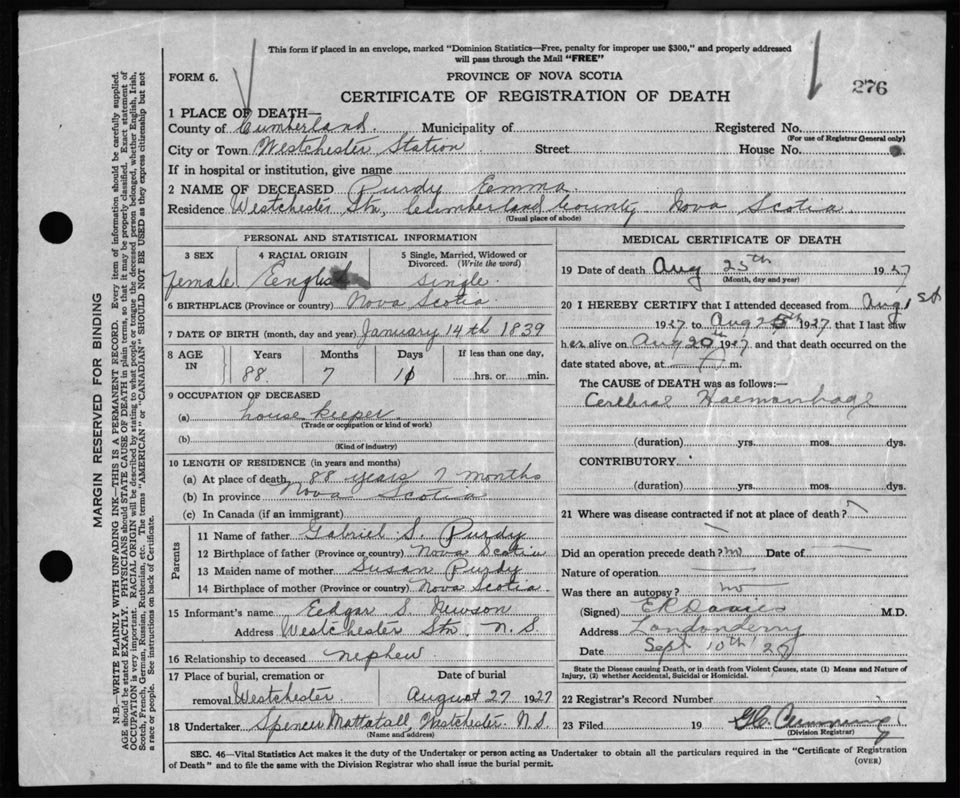 This form if placed in an envelope, marked "Dominion Statistics—Free, penalty for improper use $300," and properly addressed
will pass through the Mail "FREE"
FORM 6.
PROVINCE OF NOVA SCOTIA
276
CERTIFICATE OF REGISTRATION OF DEATH
1 PLACE OF DEATH—
County of Cumberland. Municipality of Registered No.
(For use of Registrar General only)
City or Town Westchester Station Street House No.
If in hospital or institution, give name
2 NAME OF DECEASED Purdy Eemma
Residence Westchester Stn, Cumberland County Nova Scotia
(Usual place of abode)
PERSONAL AND STATISTICAL INFORMATION
3 SEX 4 RACIAL ORIGIN 5 Single, Married, Widowed or
Divorced. (Write the word)
female English single.
6 BIRTHPLACE (Province or country) Nova Scotia
7 DATE OF BIRTH (month, day and year) January 14th 1839
8 AGE IN Years Months Days If less than one day,
88. 7 hrs. or min.
9 OCCUPATION OF DECEASED
(a) house keeper
(Trade or occupation or kind of work)
(b)
(Kind of industry)
10 LENGTH OF RESIDENCE (in years and months)
(a) At place of death 88 years 7 months
(b) In province Nova Scotia
(c) In Canada (if an immigrant)
Parents
11 Name of father Gabriel S. Purdy
12 Birthplace of father (Province or country) Nova Scotia
13 Maiden name of mother Susan Purdy
14 Birthplace of mother (Province or country) Nova Scotia
15 Informant's name Eedgar S. Newson
Address Westchester Stn. N.S.
16 Relationship to deceased nephew
17 Place of burial, cremation or Date of burial
removal Westchester. August 27 1927
18 Undertaker Spencer Mattatall Westchester N.S.
(Name and address)
MEDICAL CERTIFICATE OF DEATH
19 Date of death Aug 25th 1927
(Month, day and year)
20 I HEREBY CERTIFY that I attended deceased from Aug 1st
1927 to Aug 25th 1927 that I last saw
her alive on Aug 20th 1927 and that death occurred on the
date stated above, at m.
The CAUSE OF DEATH was as follows:—
Cerebral Haemorrhage
(duration) yrs. mos. dys.
CONTRIBUTORY
(duration) yrs. mos. dys.
21 Where was disease contracted if not at place of death?
Did an operation precede death? no Date of
Nature of operation
Was there an autopsy? no
(Signed) E R Davies M.D.
Address Londonderry
Date Sept 10th
State the Disease causing Death, or in death from Violent Causes, state (1) Means and Nature of
Injury, (2) whether Accidental, Suicidal or Homicidal.
22 Registrar's Record Number
23 Filed 19 Cumming
(Division Registrar)
SEC. 46—Vital Statistics Act makes it the duty of the Undertaker or person acting as Undertaker to obtain all the particulars required in the "Certificate of Registration
of Death" and to file the same with the Division Registrar who shall issue the burial permit.
(OVER)
MARGIN RESERVED FOR BINDING
N.B.—WRITE PLAINLY WITH UNFADING INK—THIS IS A PERMANENT RECORD. Every item of information should be carefully supplied.
AGE should be stated EXACTLY. PHYSICIANS should STATE CAUSE OF DEATH in plain terms, so that it may be properly classified. Exact statement of
OCCUPATION is very important. RACIAL ORIGIN will be described by stating to what people or tongue the deceased person belonged, whether English, Irish,
Scotch, French, German, Russian, Ruthenian, etc. The terms "AMERICAN" or "CANADIAN" SHOULD NOT BE USED as they express citizenship but not
a race or people. See instructions on back of Certificate.